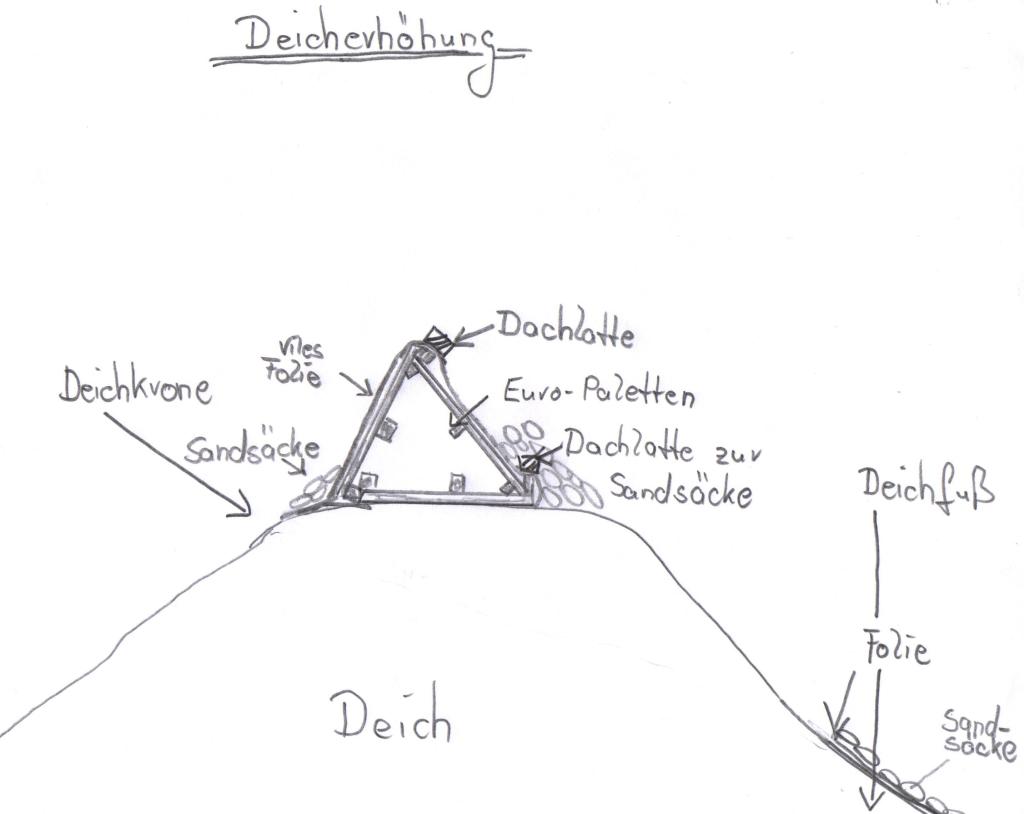 Deicherhöhung
Dachlatte
vlies
Folie
Deichkrone
Euro-Paletten
Sandsäcke
Dachlatte zur
Sandsäcke
Deichfuß
Folie
Deich
Sand-
säcke